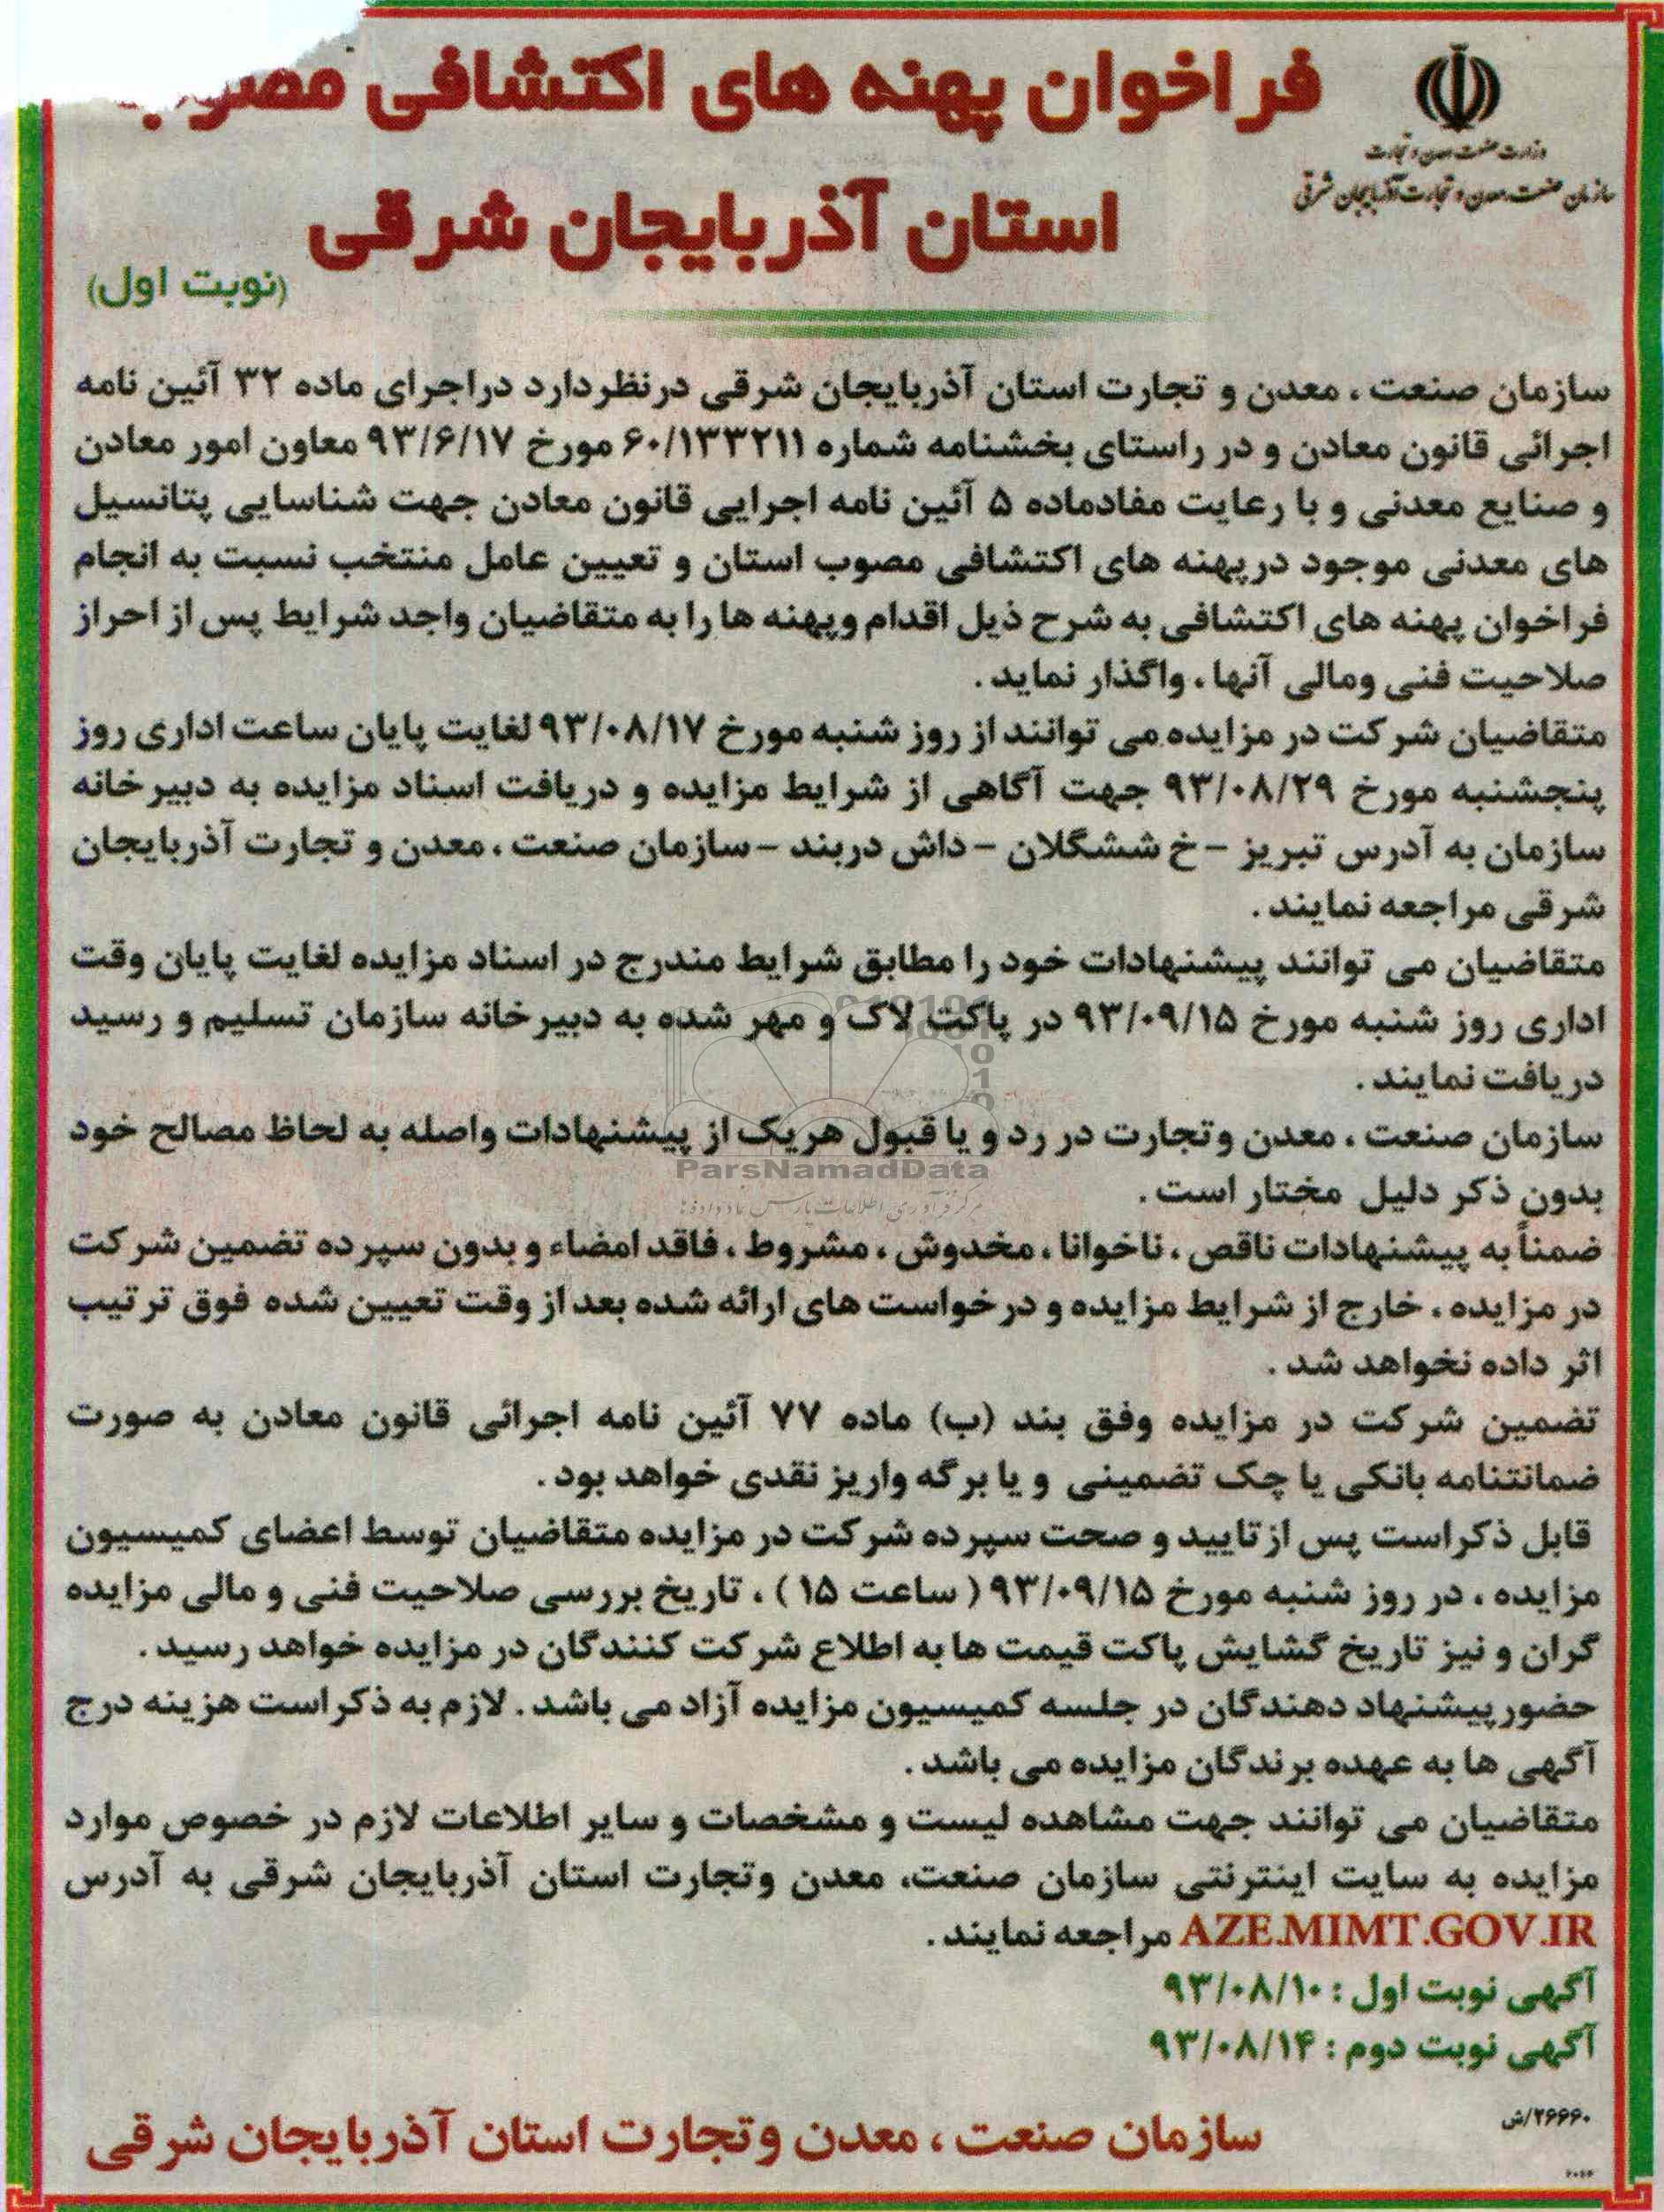 فراخوان پهنه های اکتشافی مصوب
وزارت صنعت، معدن و تجارت
سازمان صنعت، معدن و تجارت آذربایجان شرقی
استان آذربایجان شرقی
(نوبت اول)
سازمان صنعت ، معدن و تجارت استان آذربایجان شرقی درنظردارد دراجرای ماده ۳۲ آئین نامه
اجرائی قانون معادن و در راستای بخشنامه شماره ۶۰/۱۳۳۲۱۱ مورخ ۹۳/۶/۱۷ معاون امور معادن
و صنایع معدنی و با رعایت مفادماده ۵ آئین نامه اجرایی قانون معادن جهت شناسایی پتانسیل
های معدنی موجود درپهنه های اکتشافی مصوب استان و تعیین عامل منتخب نسبت به انجام
فراخوان پهنه های اکتشافی به شرح ذیل اقدام وپهنه ها را به متقاضیان واجد شرایط پس از احراز
صلاحیت فنی ومالی آنها ، واگذار نماید .
متقاضیان شرکت در مزایده می توانند از روز شنبه مورخ ۹۳/۰۸/۱۷ لغایت پایان ساعت اداری روز
پنجشنبه مورخ ۹۳/۰۸/۲۹ جهت آگاهی از شرایط مزایده و دریافت اسناد مزایده به دبیرخانه
سازمان به آدرس تبریز -خ ششگلان -داش دربند -سازمان صنعت ، معدن و تجارت آذربایجان
شرقی مراجعه نمایند .
متقاضیان می توانند پیشنهادات خود را مطابق شرایط مندرج در اسناد مزایده لغایت پایان وقت
اداری روز شنبه مورخ ۹۳/۰۹/۱۵ در پاکت لاک و مهر شده به دبیرخانه سازمان تسلیم و رسید
دریافت نمایند .
سازمان صنعت ، معدن وتجارت در رد و یا قبول هریک از پیشنهادات واصله به لحاظ مصالح خود
ParsNamadData
بدون ذکر دلیل مختار است .
مرکز فرآوری اطلاعات پارس نماد داده ها
ضمناً به پیشنهادات ناقص ، ناخوانا ، مخدوش ، مشروط ، فاقد امضاء و بدون سپرده تضمین شرکت
در مزایده ، خارج از شرایط مزایده و درخواست های ارائه شده بعد از وقت تعیین شده فوق ترتیب
اثر داده نخواهد شد .
تضمین شرکت در مزایده وفق بند (ب) ماده ۷۷ آئین نامه اجرائی قانون معادن به صورت
ضمانتنامه بانکی یا چک تضمینی و یا برگه واریز نقدی خواهد بود .
قابل ذکراست پس ازتایید و صحت سپرده شرکت در مزایده متقاضیان توسط اعضای کمیسیون
مزایده ، در روز شنبه مورخ ۹۳/۰۹/۱۵ ( ساعت ۱۵ ) ، تاریخ بررسی صلاحیت فنی و مالی مزایده
گران و نیز تاریخ گشایش پاکت قیمت ها به اطلاع شرکت کنندگان در مزایده خواهد رسید .
حضورپیشنهاد دهندگان در جلسه کمیسیون مزایده آزاد می باشد . لازم به ذکراست هزینه درج
آگهی ها به عهده برندگان مزایده می باشد .
متقاضیان می توانند جهت مشاهده لیست و مشخصات و سایر اطلاعات لازم در خصوص موارد
مزایده به سایت اینترنتی سازمان صنعت، معدن وتجارت استان آذربایجان شرقی به آدرس
AZE.MIMT.GOV.IR مراجعه نمایند .
آگهی نوبت اول : ۹۳/۰۸/۱۰
آگهی نوبت دوم : ۹۳/۰۸/۱۴
۲۶۶۶۰/ش
سازمان صنعت ، معدن وتجارت استان آذربایجان شرقی